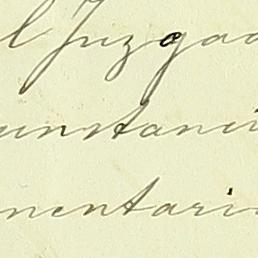 l Juzgad
unstanci
mentari